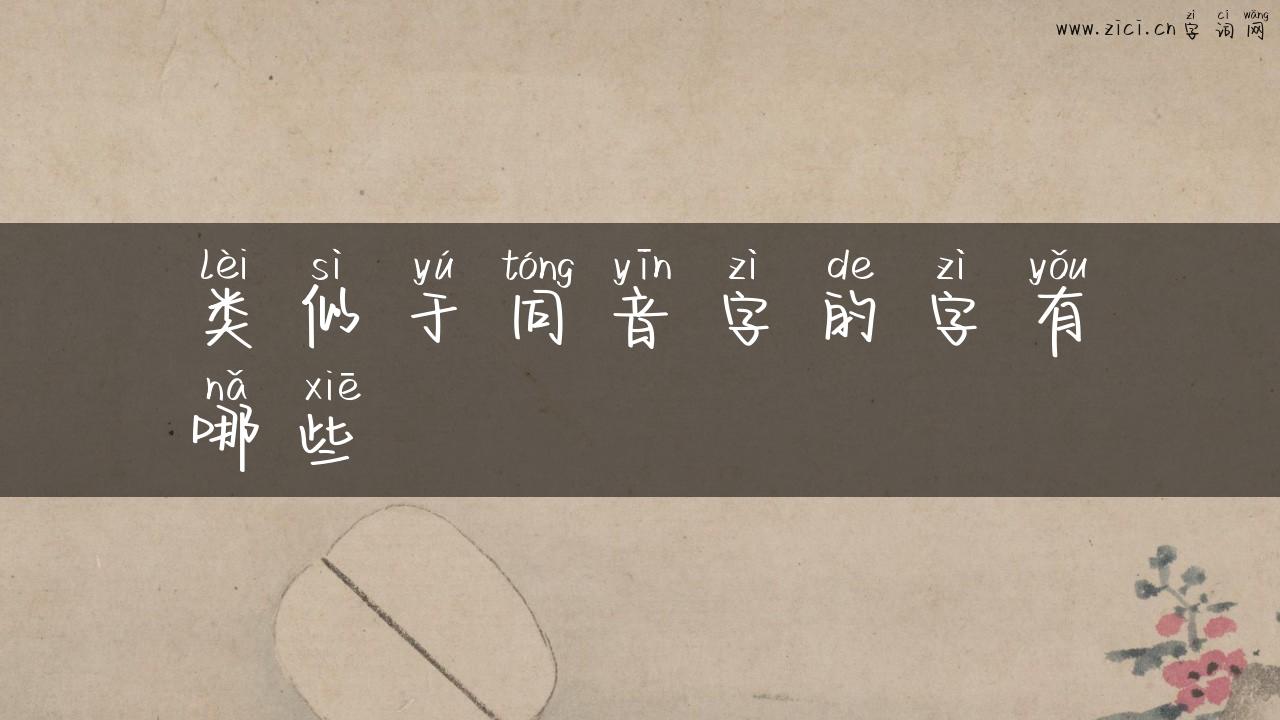 zì cí wǎng
www.zici.cn 字词网
lèi sì yú tóng yīn zì de zì yǒu
类似于同音字的字有
nǎ xiē
哪些